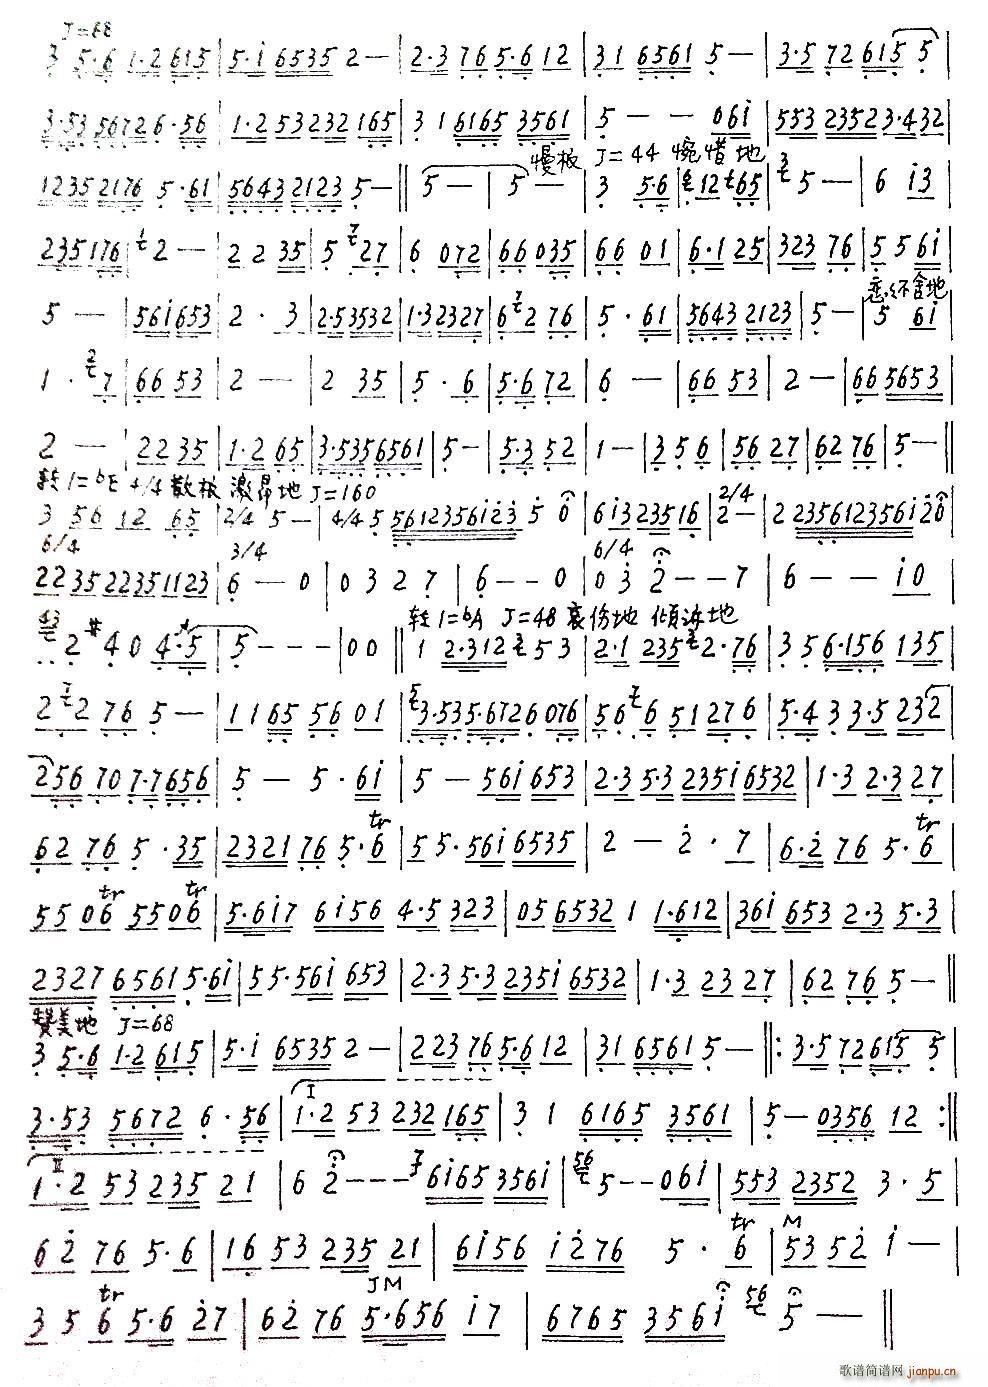 J=68
3 5·6 1·2 615 | 5·i 6535 2— | 2·3 76 5·6 12 | 31 6561 5— | 3·5 72 615 5 |
3·53 5672 6·56 | 1·2 53 232 165 | 3 1 6165 3561 | 5 — — 06i | 553 2352 3·432 |
慢板 J=44 惋惜地
1235 2176 5·61 | 56432123 5— ‖ 5— | 5— | 3 5·6 | 12 765 | 5— | 6 i3 |
235176 | 2— | 2 2 35 | 5 27 | 6 072 | 66 035 | 66 01 | 6·1 25 | 323 76 | 5 5 6i |
恋恋不舍地
5 — | 56i653 | 2· 3 | 2·53532 | 1·32327 | 6 2 76 | 5·61 | 5643 2123 | 5— | 5 6i
1· 7 | 66 53 | 2— | 2 35 | 5·6 | 5·6 72 | 6— | 66 53 | 2— | 66 5653 |
2 — | 22 35 | 1·2 65 | 3·5356561 | 5— | 5·3 52 | 1— | 3 5 6 | 56 27 | 62 76 | 5— ‖
转1=bE 4/4 散板 激昂地 J=160
3 56 12 65 | 2/4 5— | 4/4 5 56123561i23 5 0 | 6i323516 | 2/4 2— | 2 2356123561i20 |
6/4 3/4 6/4
22352235 1123 | 6—0 | 0 3 2 7 | 6——0 | 0 3 2——7 | 6——i0 |
转1=bA J=48 哀伤地 倾诉地
43 2 #4 0 4·5 | 5——— | 00 ‖ 1 2·312 3 5 3 | 2·1 235 2·76 | 3 5 6·156 135 |
2 7 2 76 5— | 1 1 65 56 01 | 3·535·6726 076 | 56 6 51 276 | 5·4 3 3·5 232 |
256 70 7·7656 | 5 — 5·6i | 5 — 56i 653 | 2·3 5·3 235i 6532 | 1·3 2·3 27 |
62 76 5·35 | 2321 76 5·6 tr | 5 5·56i 6535 | 2 — 2·7 | 6·2 76 5·6 tr |
55 06 tr 55 06 tr | 5·6i7 6i56 4·5 323 | 05 6532 1 1·612 | 36i 653 2·3 5·3 |
2327 6561 5·6i | 55·56i 653 | 2·3 5·3 235i 6532 | 1·3 23 27 | 62 76 5— ‖
赞美地 J=68
3 5·6 1·2 615 | 5·i 6535 2— | 223 76 5·6 12 | 31 6561 5— ‖: 3·5 72 615 5 |
3·53 5672 6·56 | I 1·2 53 232 165 | 3 1 6165 3561 | 5— 0356 12 :‖
II 1·2 53 235 21 | 6 2——— 7 6i65 356i | 56 5——06i | 553 2352 3·5 |
62 76 5·6 | 16 53 235 21 | 6i56 i276 5·6 tr | M 53 52 i— |
3 5 6 tr 5·6 27 | 62 76 JM 5·656 i7 | 6765 356i 56 5 — ‖
歌谱简谱网 jianpu.cn